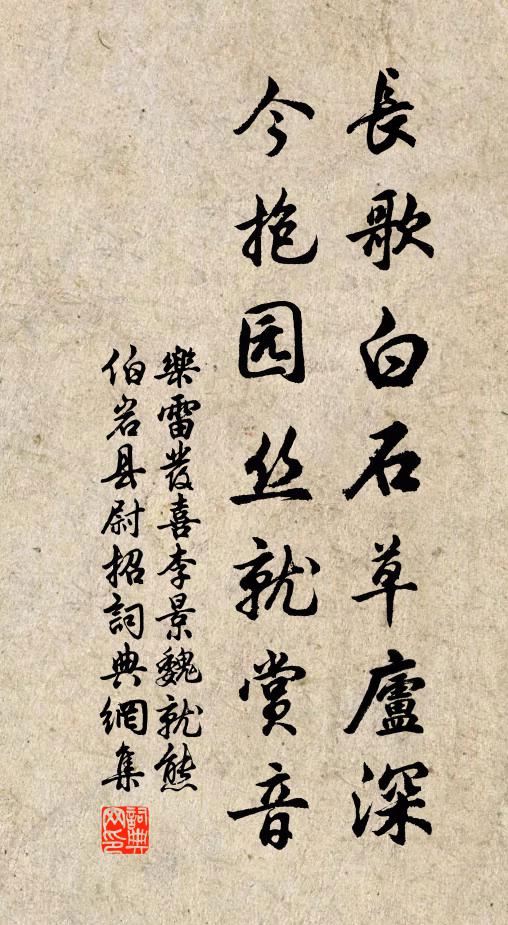 長歌白石草廬深
今抱园丝就赏音
樂雷發喜李景魏就熊
伯岩县尉招詞典網集
詞典网印